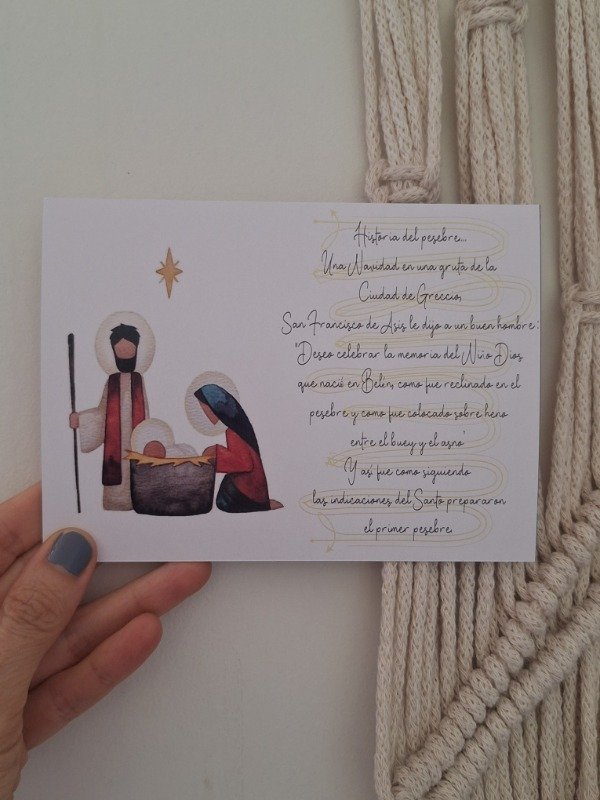 Historia del pesebre...
Una Navidad en una gruta de la
Ciudad de Greccio,
San Francisco de Asis le dijo a un buen hombre:
"Deseo celebrar la memoria del Niño Dios
que nació en Belén, como fue reclinado en el
pesebre y como fue colocado sobre heno
entre el buey y el asno"
Y así fue como siguiendo
las indicaciones del Santo prepararon
el primer pesebre.